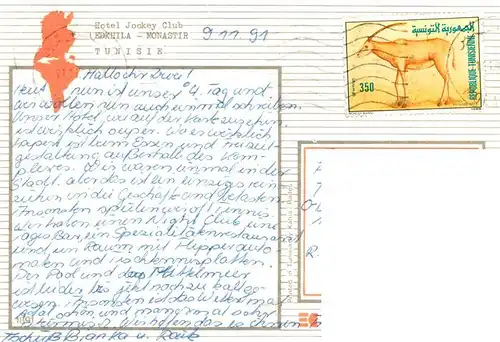 Hotel Jockey Club
SKHILA - MONASTIR
TUNISIE
9.11.91
الجمهورية التونسية
REPUBLIQUE TUNISIENNE
350
Hallo ihr Zwei!
Heut nun ist unser 4. Tag und
wir wollen nun auch einmal schreiben.
Unser Hotel, wie auf der Karte zu sehen,
ist wirklich super. Wo es wirklich
hapert ist beim Essen und Freizeit-
gestaltung außerhalb des Kom-
plexes. Wir waren einmal in der
Stadt, aber das ist ein einziges rein-
ziehen in die Geschäfte und
Ansonsten spielen wir viel Tennis.
Wir haben einen Night Club, eine
Bar, ein Spezialitätenrestaurant
und ein Raum mit Flipperauto-
maten und Tischtennisplatten.
Der Pool und das Mittelmeer
ist leider bis jetzt noch zu kalt ge-
wesen. Ansonsten ist das Wetter mal
schön und manchmal sehr
stürmisch. Wir hoffen das es
Tschüß Bianka u.